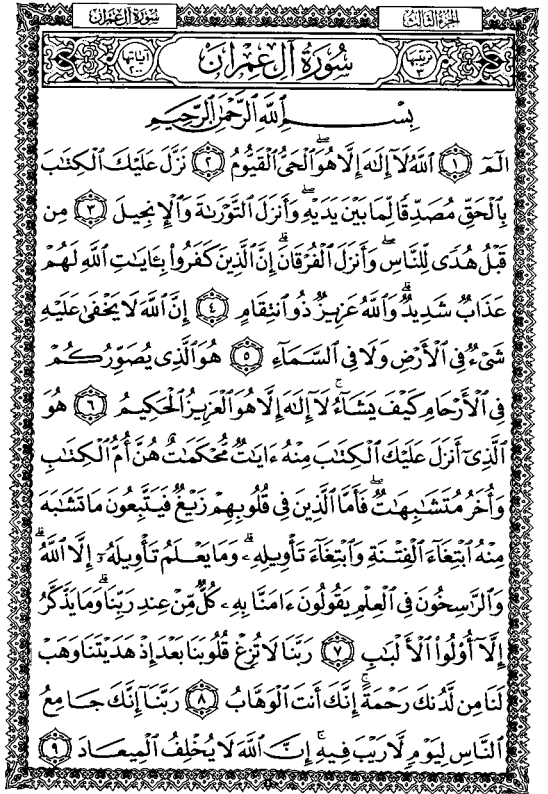 سُورَةُ آلِ عِمْرَانَ
الجُزْءُ الثَّالِثُ
ترتيبها ٣
سُورَةُ آلِ عِمْرَان
آياتها ٢٠٠
بِسْمِ اللَّهِ الرَّحْمَٰنِ الرَّحِيمِ
الٓمٓ ١ اللَّهُ لَآ إِلَٰهَ إِلَّا هُوَ ۖ الْحَىُّ الْقَيُّومُ ٢ نَزَّلَ عَلَيْكَ الْكِتَٰبَ
بِالْحَقِّ مُصَدِّقًا لِّمَا بَيْنَ يَدَيْهِ ۖ وَأَنزَلَ التَّوْرَىٰةَ وَالْإِنجِيلَ ٣ مِن
قَبْلُ هُدًى لِّلنَّاسِ ۖ وَأَنزَلَ الْفُرْقَانَ ۗ إِنَّ الَّذِينَ كَفَرُوا۟ بِـَٔايَٰتِ اللَّهِ لَهُمْ
عَذَابٌ شَدِيدٌ ۗ وَاللَّهُ عَزِيزٌ ذُو انتِقَامٍ ٤ إِنَّ اللَّهَ لَا يَخْفَىٰ عَلَيْهِ
شَىْءٌ فِى الْأَرْضِ وَلَا فِى السَّمَآءِ ٥ هُوَ الَّذِى يُصَوِّرُكُمْ
فِى الْأَرْحَامِ كَيْفَ يَشَآءُ ۚ لَآ إِلَٰهَ إِلَّا هُوَ الْعَزِيزُ الْحَكِيمُ ٦ هُوَ
الَّذِىٓ أَنزَلَ عَلَيْكَ الْكِتَٰبَ مِنْهُ ءَايَٰتٌ مُّحْكَمَٰتٌ هُنَّ أُمُّ الْكِتَٰبِ
وَأُخَرُ مُتَشَٰبِهَٰتٌ ۖ فَأَمَّا الَّذِينَ فِى قُلُوبِهِمْ زَيْغٌ فَيَتَّبِعُونَ مَا تَشَٰبَهَ
مِنْهُ ابْتِغَآءَ الْفِتْنَةِ وَابْتِغَآءَ تَأْوِيلِهِۦ ۗ وَمَا يَعْلَمُ تَأْوِيلَهُۥٓ إِلَّا اللَّهُ ۗ
وَالرَّٰسِخُونَ فِى الْعِلْمِ يَقُولُونَ ءَامَنَّا بِهِۦ كُلٌّ مِّنْ عِندِ رَبِّنَا ۗ وَمَا يَذَّكَّرُ
إِلَّآ أُو۟لُوا۟ الْأَلْبَٰبِ ٧ رَبَّنَا لَا تُزِغْ قُلُوبَنَا بَعْدَ إِذْ هَدَيْتَنَا وَهَبْ
لَنَا مِن لَّدُنكَ رَحْمَةً ۚ إِنَّكَ أَنتَ الْوَهَّابُ ٨ رَبَّنَآ إِنَّكَ جَامِعُ
النَّاسِ لِيَوْمٍ لَّا رَيْبَ فِيهِ ۚ إِنَّ اللَّهَ لَا يُخْلِفُ الْمِيعَادَ ٩